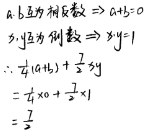 a.b互为相反数 ⇒ a+b=0
x.y互为倒数 ⇒ x·y=1
∴ 1/4(a+b) + 7/2xy
= 1/4×0 + 7/2×1
= 7/2